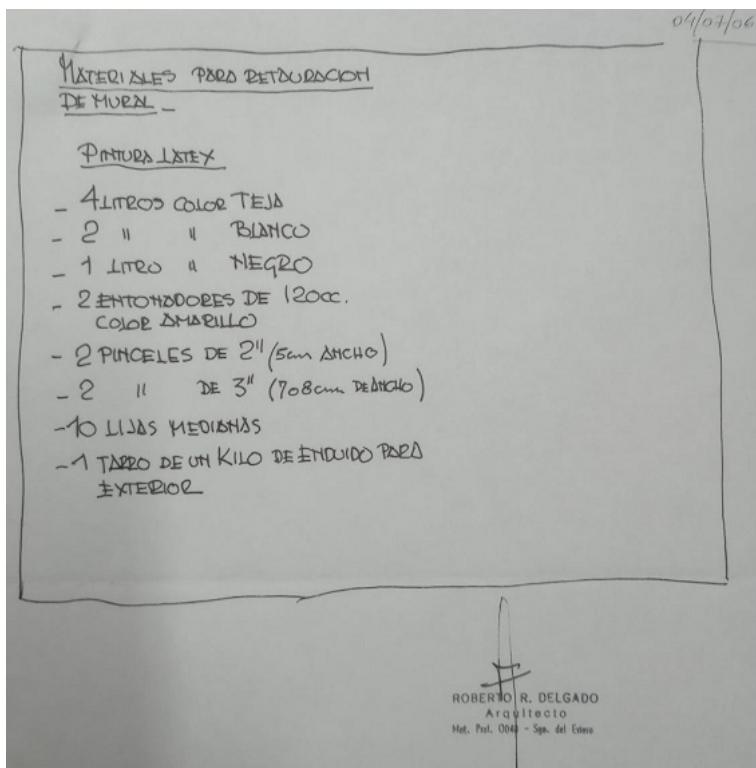 04/07/06
MATERIALES PARA RETAURACION
DE MURAL _
PINTURA LATEX
- 4 LITROS COLOR TEJA
- 2 " " BLANCO
- 1 LITRO " NEGRO
- 2 ENTONADORES DE 120cc.
COLOR AMARILLO
- 2 PINCELES DE 2" (5cm ANCHO)
- 2 " DE 3" (7 o 8cm DE ANCHO)
- 10 LIJAS MEDIANAS
- 1 TARRO DE UN KILO DE ENDUIDO PARA
EXTERIOR
ROBERTO R. DELGADO
Arquitecto
Mat. Prof. - Sgo. del Estero